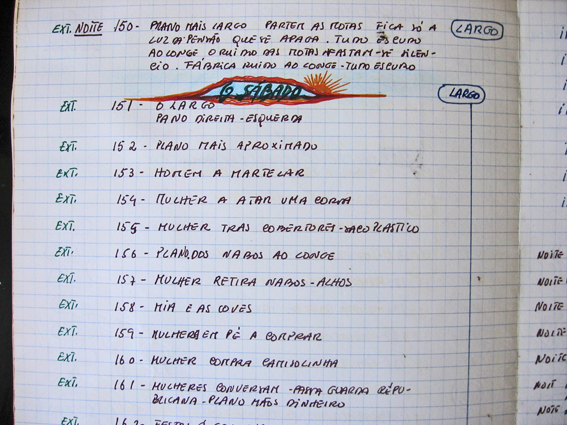 EXT. NOITE 150- PLANO MAIS LARGO PARTEM AS MOTAS FICA SÓ A LARGO
LUZ DA PENSÃO QUE SE APAGA. TUDO ESCURO
AO LONGE O RUIDO DAS MOTAS AFASTAM-SE SILEN-
CIO. FÁBRICA RUIDO AO LONGE - TUDO ESCURO
O SABADO
EXT. 151- O LARGO LARGO
PANO DIREITA - ESQUERDA
EXT. 152- PLANO MAIS APROXIMADO
EXT. 153- HOMEM A MARTELAR
EXT. 154- MULHER A ATAR UMA CORDA
EXT. 155- MULHER TRAS COBERTORES - SACO PLASTICO
EXT. 156- PLANO DOS NABOS AO LONGE
NOITE
EXT. 157- MULHER RETIRA NABOS - ALHOS
NOITE
EXT. 158- MIA E AS COVES
NOITE
EXT. 159- MULHER EM PÉ A COMPRAR
NOITE
EXT. 160- MULHER COMPRA CAMISOLINHA
NOITE
EXT. 161- MULHERES CONVERSAM - PASSA GUARDA RÉPU-
BLICANA - PLANO MÃOS DINHEIRO
NOITE
EXT.